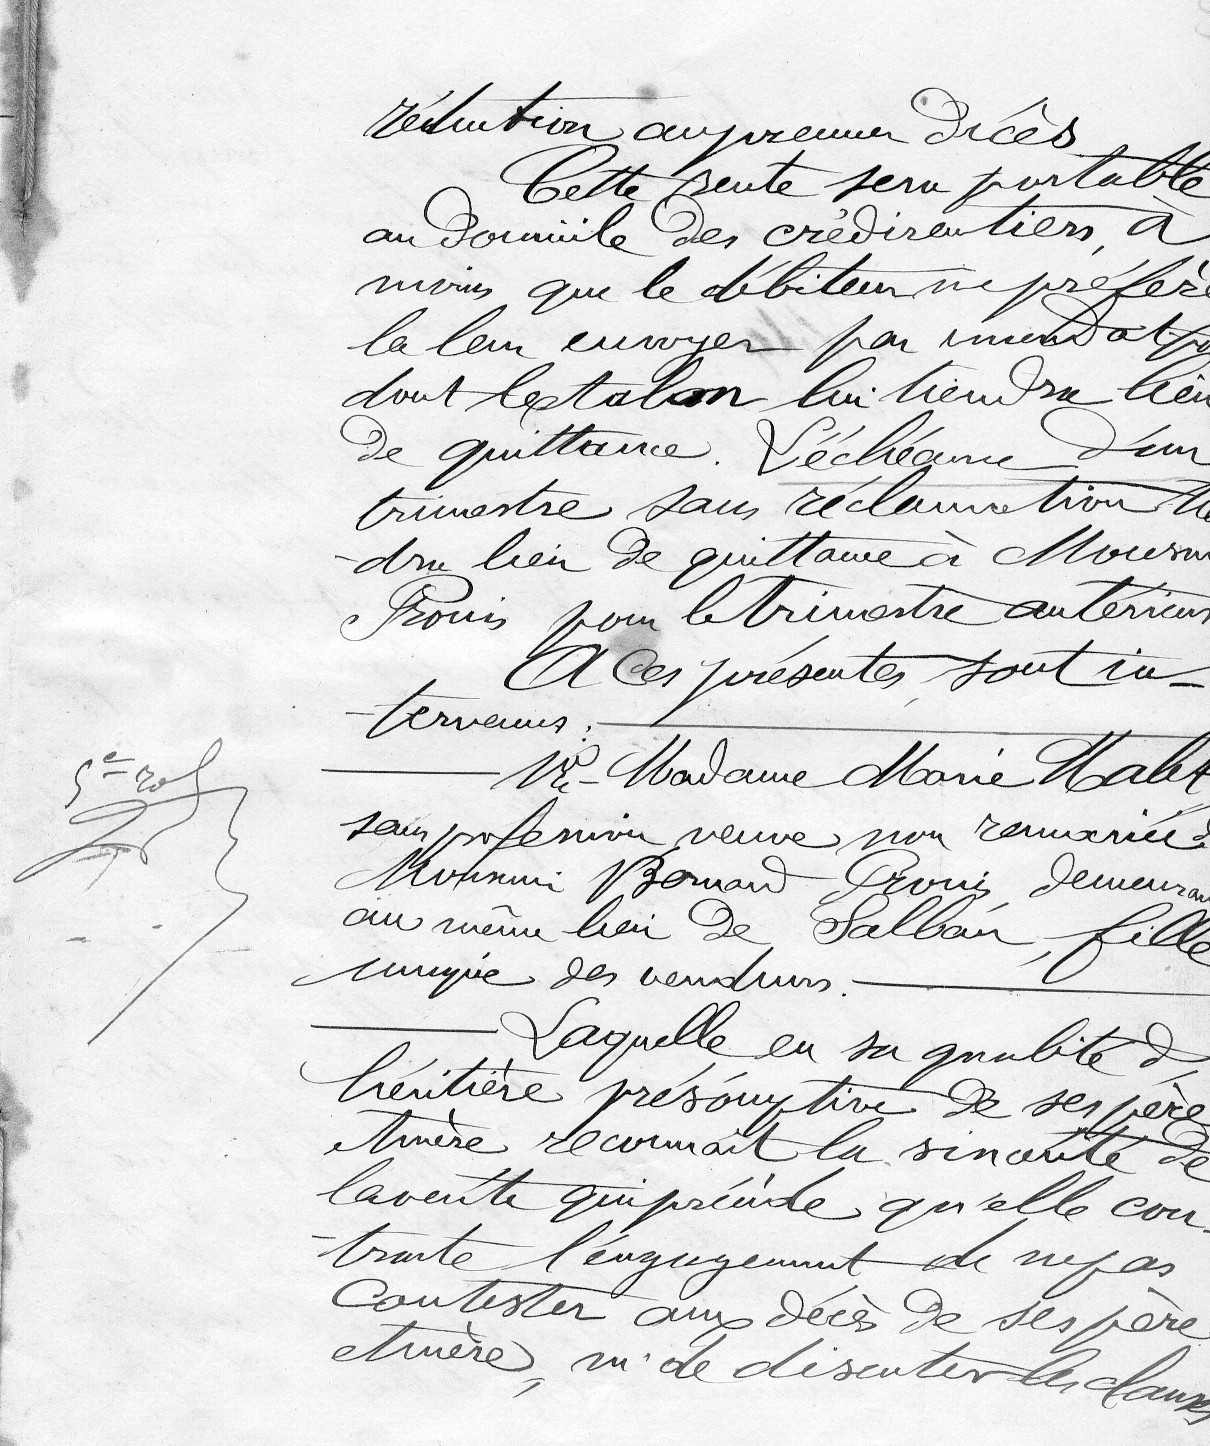 réduction au premier décès
Cette rente sera portable
au domicile des crédirentiers, à
moins que le débiteur ne préfère
la leur envoyer par mandat po
dont le talon lui tiendra lieu
de quittance. L'échéance d'un
trimestre sans réclamation tie
-dra lieu de quittance à Monsieu
Prouis pour le trimestre antérieur
A Ces présentes, sont in-
-tervenus :
Madame Marie Malet
sans profession veuve non remariée d
Monsieur Bernard Prouis, demeuran
au même lieu de Salban, fille
unique des vendeurs.
Laquelle en sa qualité d'
héritière présomptive de ses père
et mère reconnait la sincérité de
la vente qui précède qu'elle con-
-tracte l'engagement de ne pas
Contester aux décès de ses père
et mère, ni de discuter les clauses
5e rol